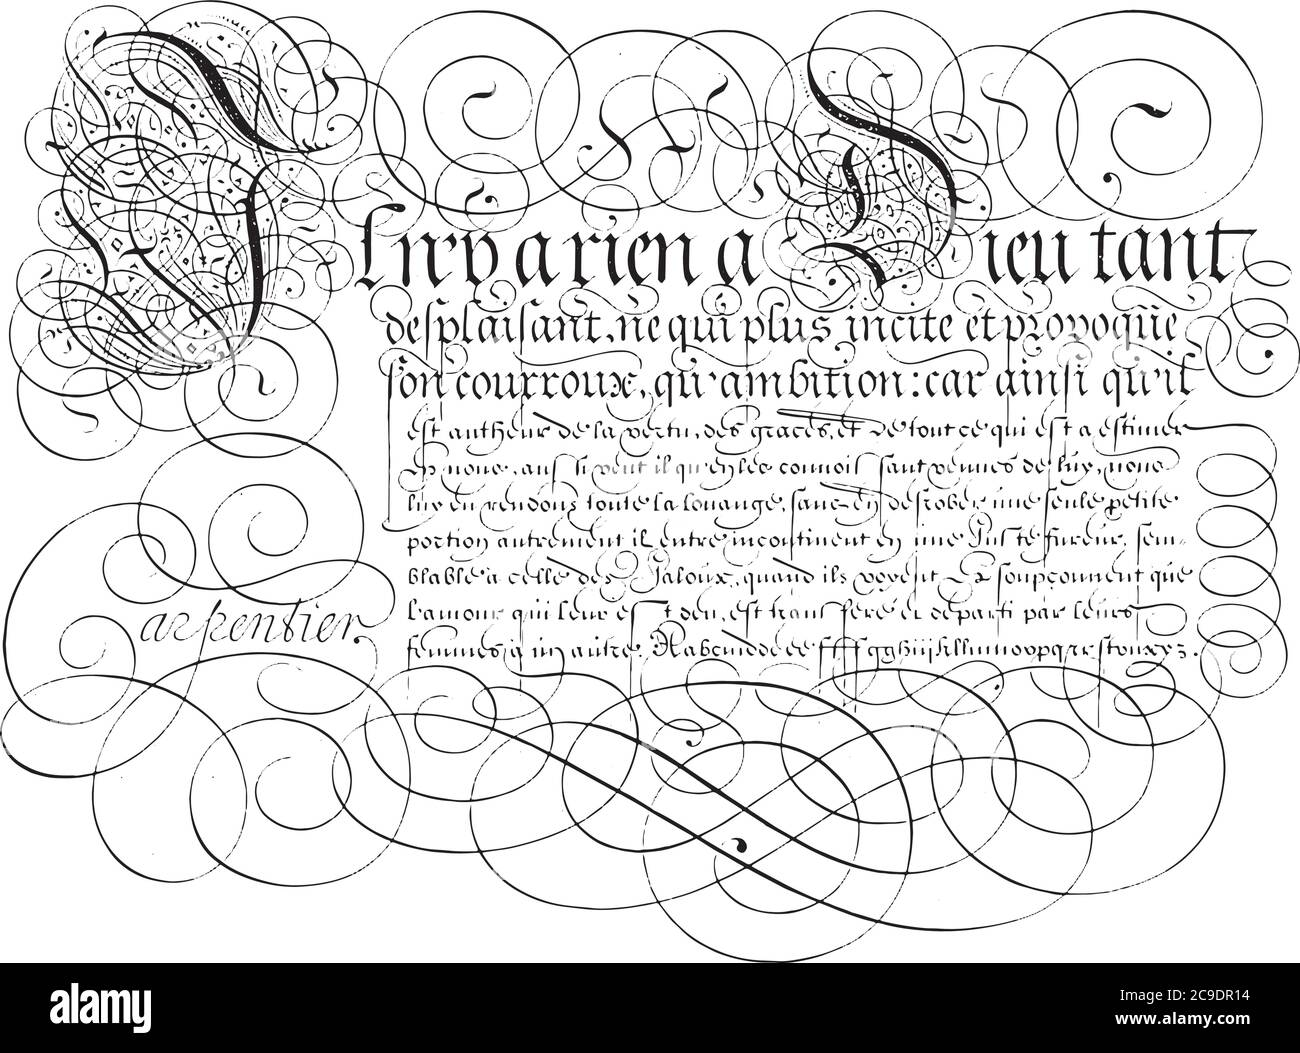 Il n'y a rien a Dieu tant
desplaisant, ne qui plus incite et provoque
son courroux, qu'ambition: car ainsi qu'il
est autheur de la vertu, des graces, et de tout ce qui est a estimer
en nous, aussi veut il qu'en les connoissant venues de luy, nous
luy en rendons toute la louange, sans en desrober une seule petite
portion autrement il entre incontinent en une Juste fureur, sem-
blable à celle des Jaloux, quand ils voyent et soupçonnent que
l'amour qui leur est deu, est transferé et departi par leurs
femmes à un autre.
arpentier
alamy
Image ID: 2C9DR14
www.alamy.com